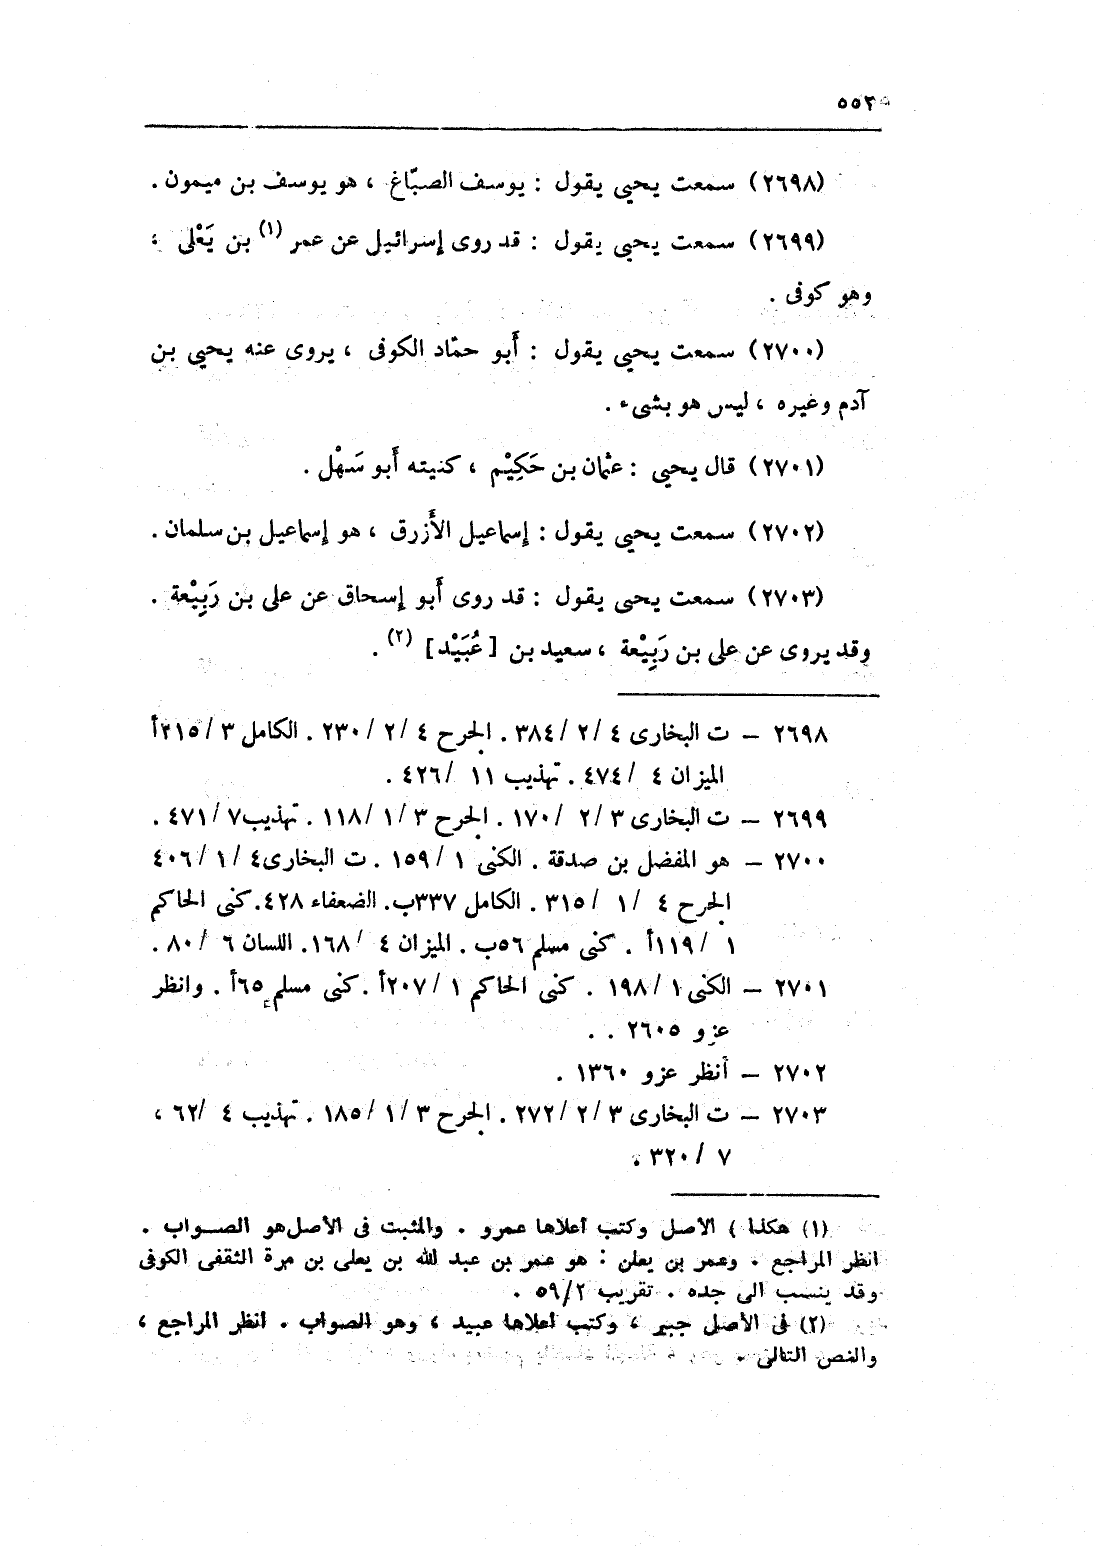 ٥٥٢
(٢٦٩٨) سمعت يحيى يقول : يوسف الصبّاغ ، هو يوسف بن ميمون .
(٢٦٩٩) سمعت يحيى يقول : قد روى إسرائيل عن عمر (١) بن يَعْلى ،
وهو كوفى .
(٢٧٠٠) سمعت يحيى يقول : أَبو حمّاد الكوفى ، يروى عنه يحيى بن
آدم وغيره ، ليس هو بشىء .
(٢٧٠١) قال يحيى : عثمان بن حَكِيْم ، كنيته أَبو سَهْل .
(٢٧٠٢) سمعت يحيى يقول : إسماعيل الأَزرق ، هو إسماعيل بن سلمان .
(٢٧٠٣) سمعت يحيى يقول : قد روى أَبو إسحاق عن على بن رَبِيْعة .
وقد يروى عن على بن رَبِيْعة ، سعيد بن [ عُبَيْد ] (٢) .
٢٦٩٨ – ت البخارى ٤ /٢ /٣٨٤ . الجرح ٤ /٢ /٢٣٠ . الكامل ٣ /٢١٥أ
الميزان ٤ /٤٧٤ . تهذيب ١١ /٤٢٦ .
٢٦٩٩ – ت البخارى ٣ /٢ /١٧٠ . الجرح ٣ /١ /١١٨ . تهذيب ٧ /٤٧١ .
٢٧٠٠ – هو المفضل بن صدقة . الكنى ١ /١٥٩ . ت البخارى ٤ /١ /٤٠٦
الجرح ٤ /١ /٣١٥ . الكامل ٣٣٧ب . الضعفاء ٤٢٨ . كنى الحاكم
١ /١١٩أ . كنى مسلم ٥٦ب . الميزان ٤ /١٦٨ . اللسان ٦ /٨٠ .
٢٧٠١ – الكنى ١ /١٩٨ . كنى الحاكم ١ /٢٠٧أ . كنى مسلم ٦٥أ . وانظر
عزو ٢٦٠٥ . .
٢٧٠٢ – أنظر عزو ١٣٦٠ .
٢٧٠٣ – ت البخارى ٣ /٢ /٢٧٢ . الجرح ٣ /١ /١٨٥ . تهذيب ٤ /٦٢ ،
٧ /٣٢٠ .
(١) هكذا ) الأصل وكتب أعلاها عمرو . والمثبت فى الأصل هو الصـــواب .
انظر المراجع . وعمر بن يعلن : هو عمر بن عبد الله بن يعلى بن مرة الثقفى الكوفى
وقد ينسب الى جده . تقريب ٥٩/٢ .
(٢) فى الأصل جبير ، وكتب أعلاها عبيد ، وهو الصواب . انظر المراجع ،
والنص التالى .